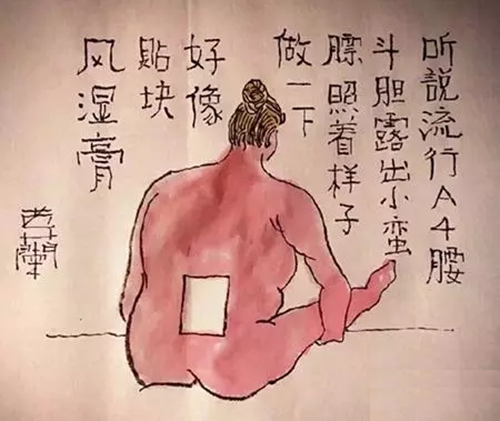 听説流行A4腰
斗胆露出小蛮
膘照着样子
做一下
好像
贴块
风湿膏